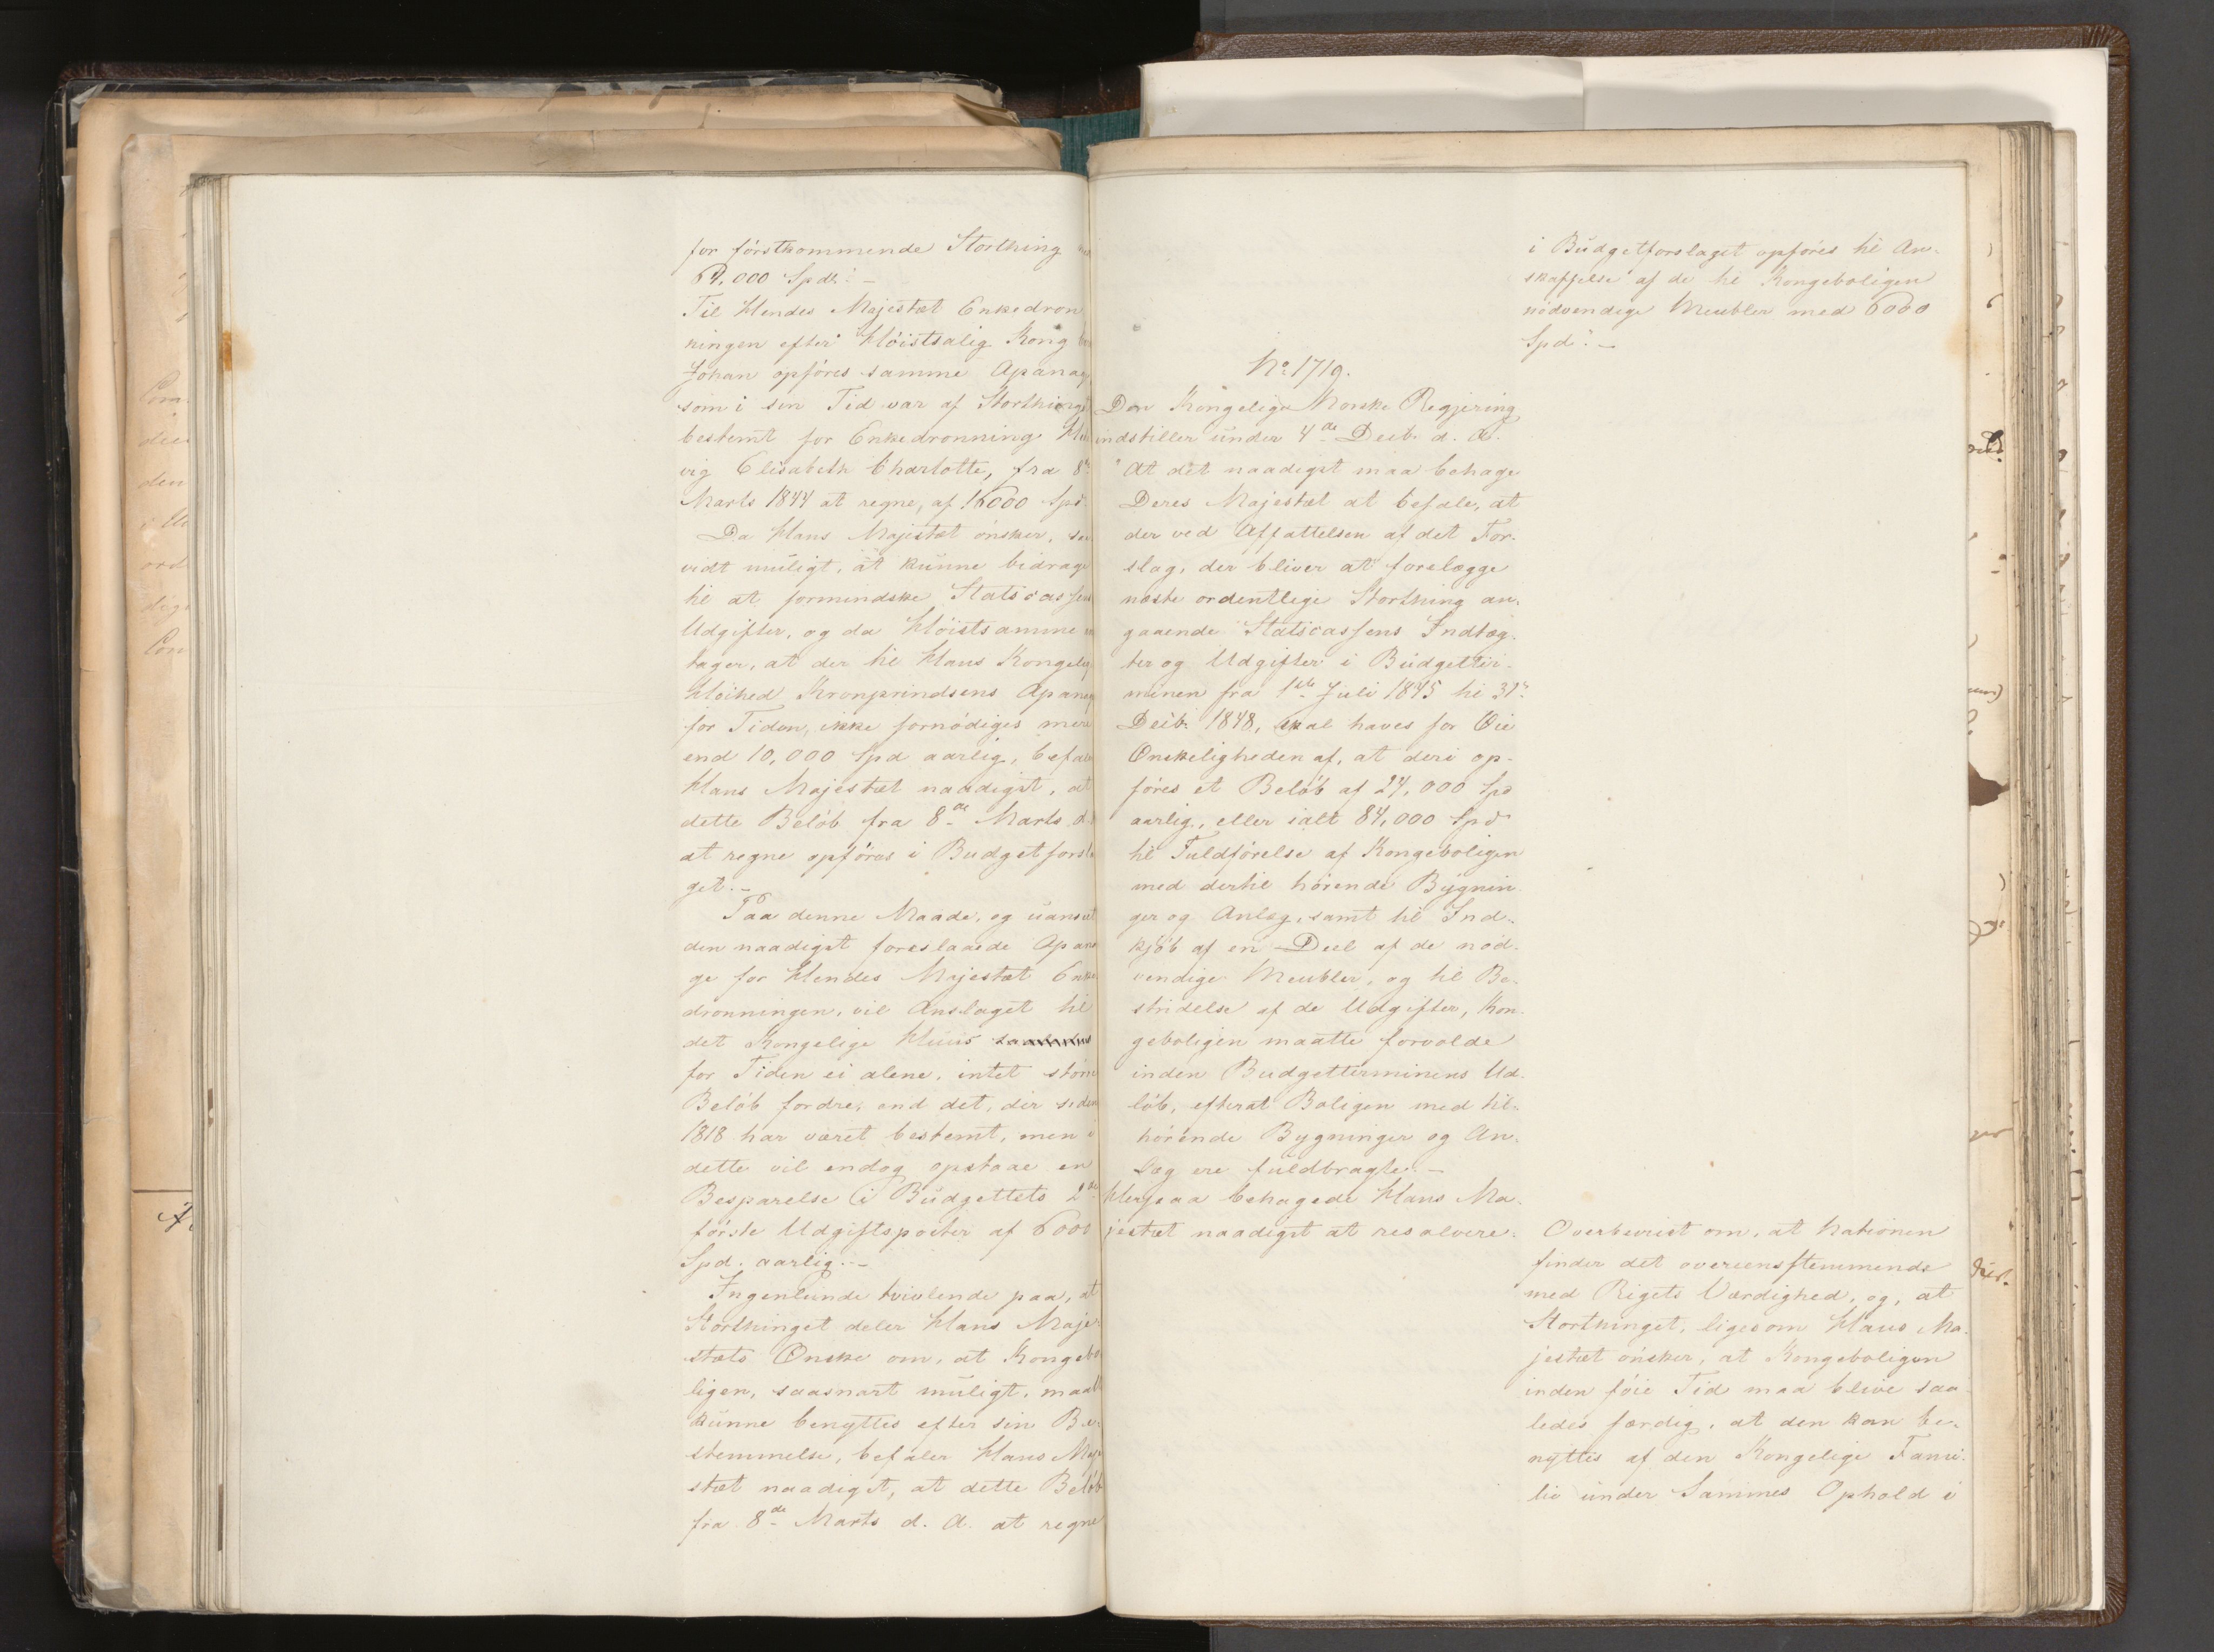 for förstkommende Storthing med
64,000 Spd: –
Til Hendes Majestæt Enkedron
ningen efter Höistsalig Kong
Johan opföres samme Apanage
som i sin Tid var af Storthinget
bestemt for Enkedronning Hed
vig Elisabeth Charlotte, fra 8de
Marts 1844 at regne, af 16000 Spd.
Da Hans Majestæt önsker, saa
vidt muligt, at kunne bidrage
til at formindske Statscassens
Udgifter, og da Höistsamme
tager, at der til Hans Kongelig
Höihed Kronprindsens Apanage
for Tiden, ikke fornödiges mere
end 10,000 Spd aarlig, befaler
Hans Majestæt naadigst, at
dette Belöb fra 8de Marts d.
at regne opföres i Budgetforsla
get. –
Paa denne Maade, og uanseet
den naadigst foreslaaede Apana
ge for Hendes Majestæt Enke
dronningen, vil Anslaget til
det Kongelige Huus
for Tiden ei alene, intet större
Belöb fordre, end det, der siden
1818 har været bestemt, men i
dette vil endog opstaae en
Besparelse i Budgettets 2de
förste Udgiftsposter af 6000
Spd. aarlig. –
Ingenlunde tvivlende paa, at
Storthinget deler Hans Maje
stæts Önske om, at Kongebo
ligen, saasnart muligt, maatte
kunne benyttes efter sin Be-
stemmelse, befaler Hans Maje
stæt naadigst, at dette Belöb
fra 8de Marts d. A. at regne
i Budgetforslaget opföres til An-
skaffelse af de til Kongeboligen
nödvendige Meubler med 6000
Spd. –
No 1719.
Den Kongelige Norske Regjering
indstiller under 4de Decb. d. A.
"At det naadigst maa behage
Deres Majestæt at befale, at
der ved Affattelsen af det For-
slag, der bliver at forelægge
næste ordentlige Storthing an-
gaaende Statscassens Indtæg-
ter og Udgifter i Budgetter-
minen fra 1ste Juli 1845 til 31te
Decbr. 1848, skal haves for Öie
Önskeligheden af, at deri op-
föres et Belöb af 24,000 Spd
aarlig, eller ialt 84,000 Spd
til Fuldförelse af Kongeboligen
med dertil hörende Bygnin-
ger og Anlæg, samt til Ind-
kjöb af en Deel af de nöd-
vendige Meubler, og til Be-
stridelse af de Udgifter, Kon-
geboligen maatte forvolde
inden Budgetterminens Ud-
löb, efterat Boligen med til-
hörende Bygninger og An-
læg ere fuldbragte. –
Herpaa behagede Hans Ma-
jestæt naadigst at resolvere:
Overbeviist om, at Nationen
finder det overeensstemmende
med Rigets Værdighed, og, at
Storthinget, ligesom Hans Ma-
jestæt önsker, at Kongeboligen
inden föie Tid maa blive saa-
ledes færdig, at den kan be-
nyttes af den Kongelige Fami-
lie under Sammes Ophold i